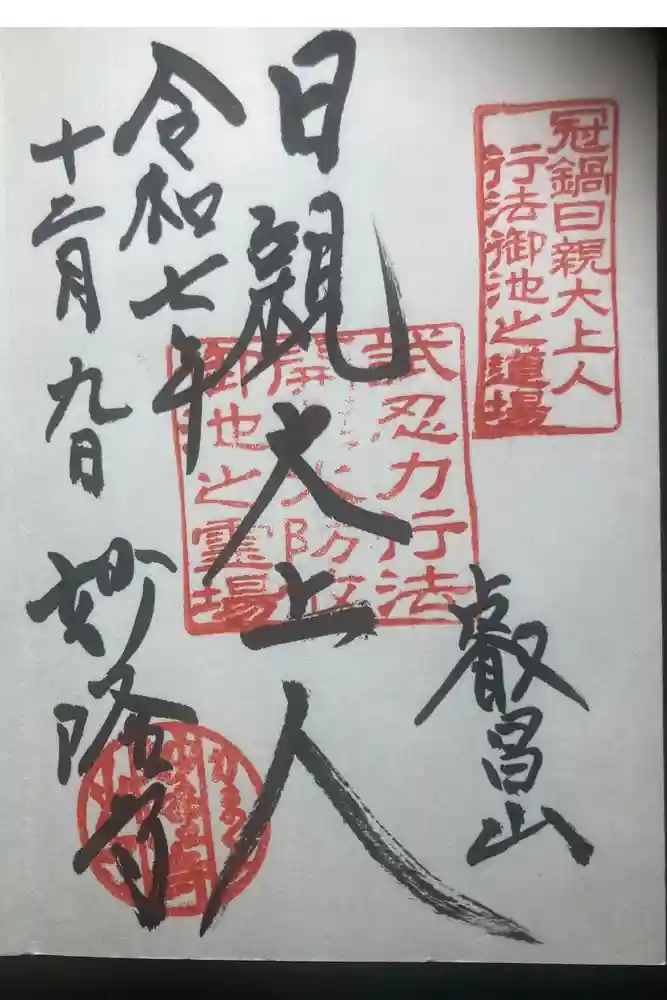 冠鍋日親大上人
行法御池之道場
叡昌山
日親大上人
忍力行法
御池之霊場
令和七年
十二月九日
妙隆寺
かまくら